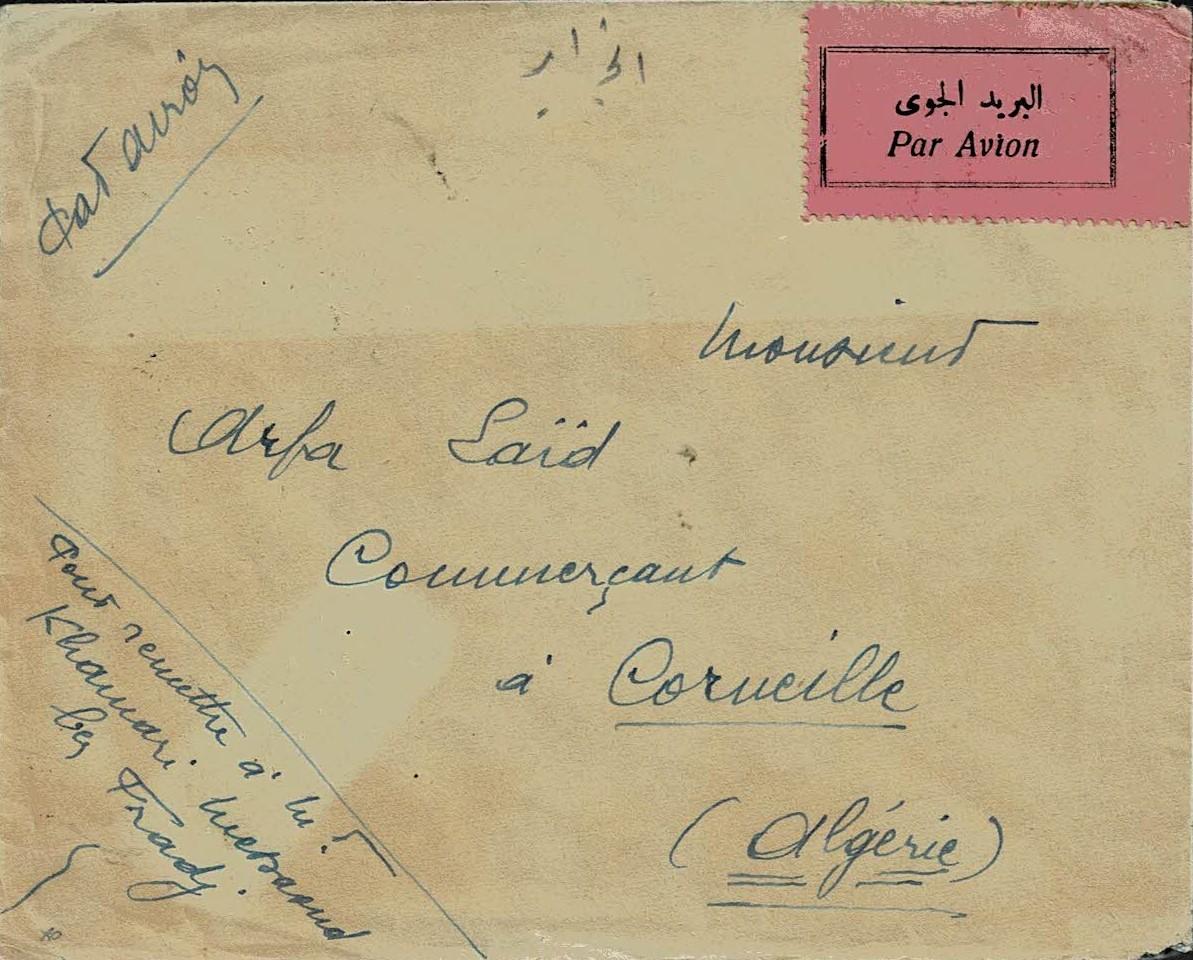 Par avion
الجزائر
البريد الجوى
Par Avion
Monsieur
Arfa Saïd
Commerçant
à Corneille
(Algérie)
Pour remettre à Mr
Khamari Messaoud
ben Fradj.